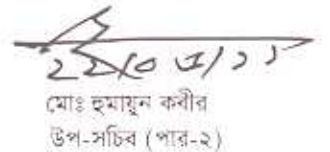 মোঃ হুমায়ুন কবীর
উপ-সচিব (পার-২)